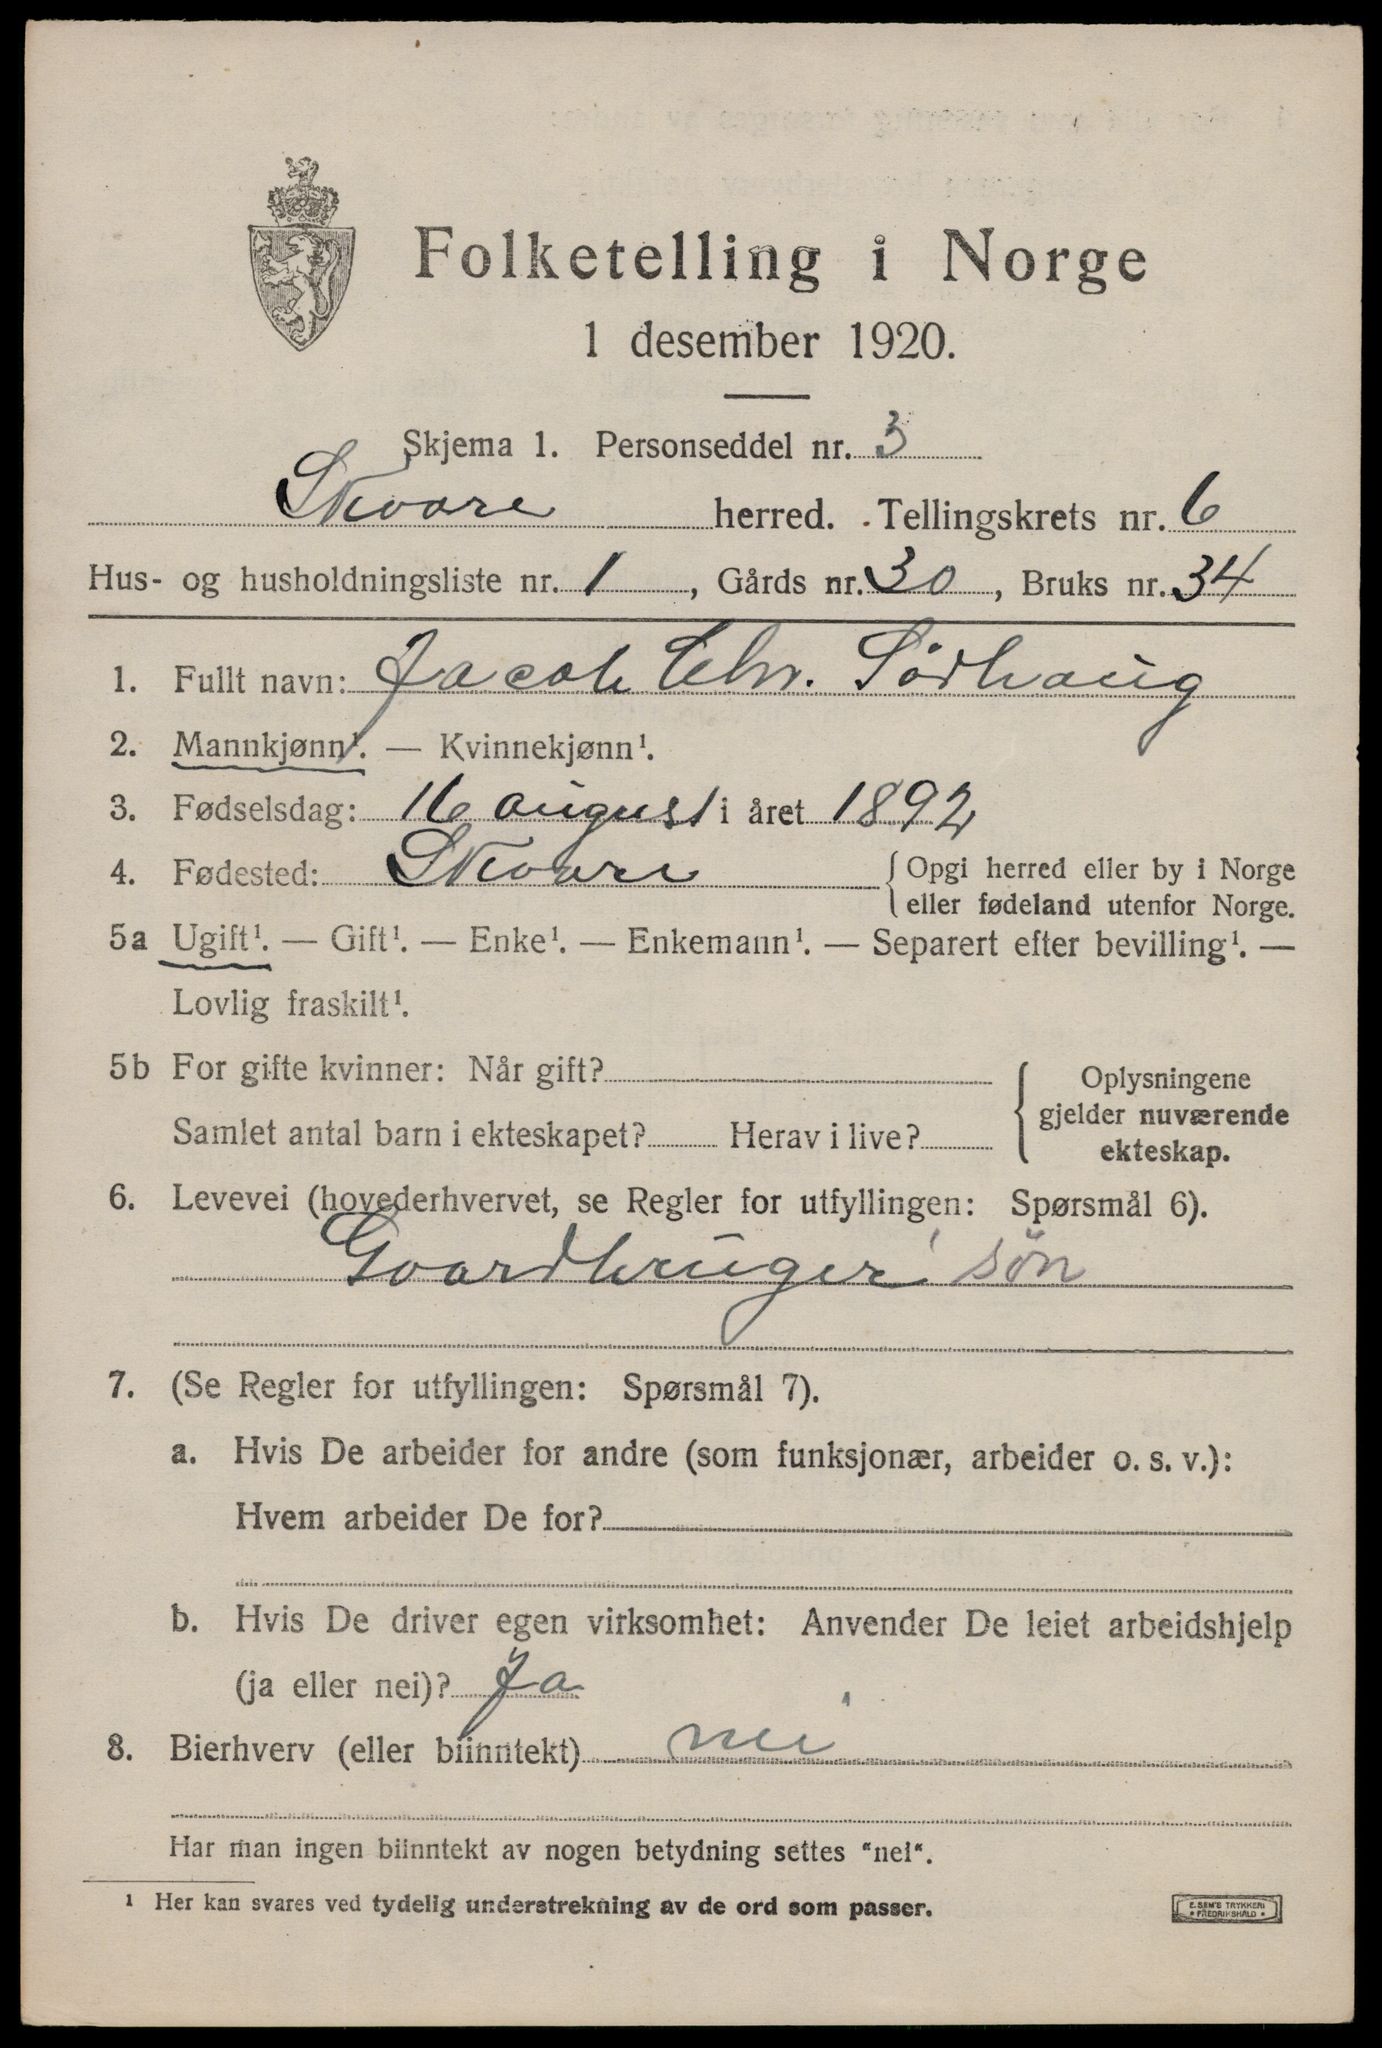 Folketelling i Norge
1 desember 1920.
Skjema 1. Personseddel nr. 3
Skaare herred. Tellingskrets nr. 6
Hus- og husholdningsliste nr. 1, Gårds nr. 30, Bruks nr. 34
1. Fullt navn: Jacob Chr. Sørhaug
2. Mannkjønn¹. — Kvinnekjønn¹.
3. Fødselsdag: 16 august i året 1892
4. Fødested: Skaare {Opgi herred eller by i Norge
eller fødeland utenfor Norge.
5a Ugift¹. — Gift¹. — Enke¹. — Enkemann¹. — Separert efter bevilling¹. —
Lovlig fraskilt¹.
5b For gifte kvinner: Når gift?
Samlet antal barn i ekteskapet? Herav i live?
{Oplysningene
gjelder nuværende
ekteskap.
6. Levevei (hovederhvervet, se Regler for utfyllingen: Spørsmål 6).
Gaardbruger søn
7. (Se Regler for utfyllingen: Spørsmål 7).
a. Hvis De arbeider for andre (som funksjonær, arbeider o. s. v.):
Hvem arbeider De for?
b. Hvis De driver egen virksomhet: Anvender De leiet arbeidshjelp
(ja eller nei)? Ja
8. Bierhverv (eller biinntekt) nei
Har man ingen biinntekt av nogen betydning settes "nei".
¹ Her kan svares ved tydelig understrekning av de ord som passer.
E. SEM'S TRYKKERI
FREDRIKSHALD